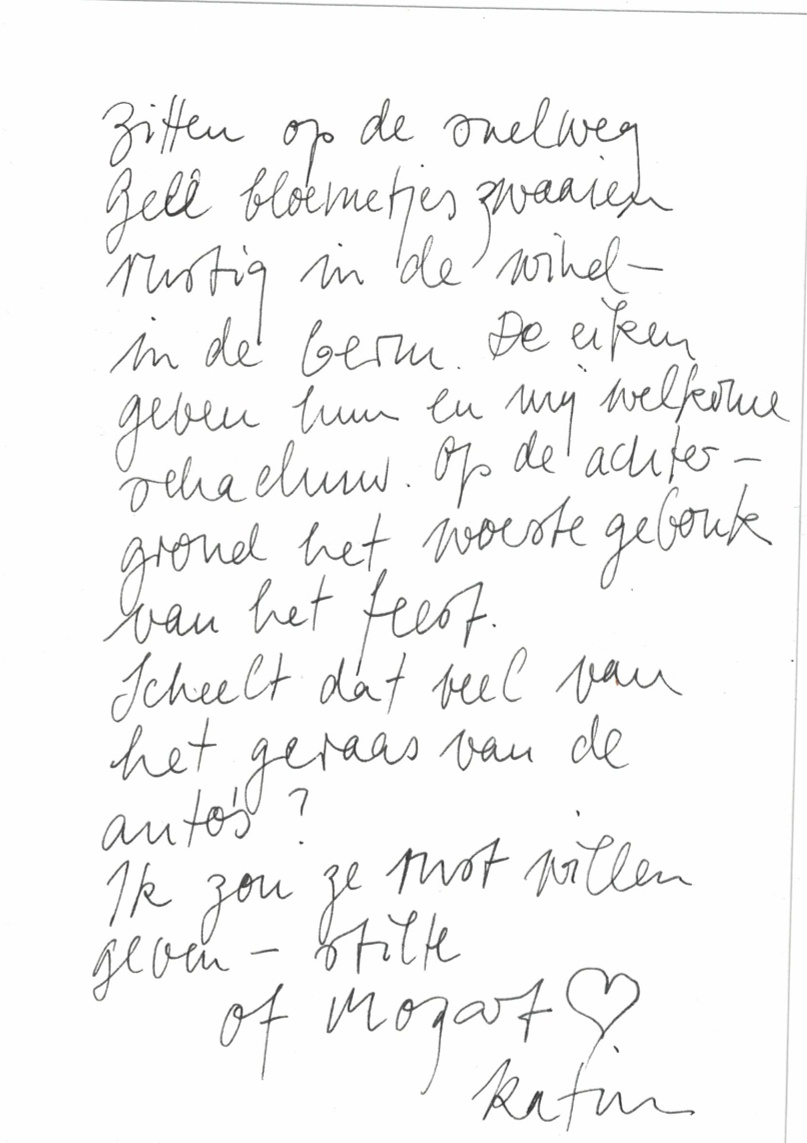 zitten op de snelweg
Gele bloemetjes zwaaien
rustig in de wind –
in de berm. De eiken
geven hun en mij welkome
schaduw. Op de achter –
grond het woeste gebonk
van het feest.
Scheelt dat veel van
het geraas van de
auto's?
Ik zou ze rust willen
geven – stilte
of Mozart ♡
Katrin